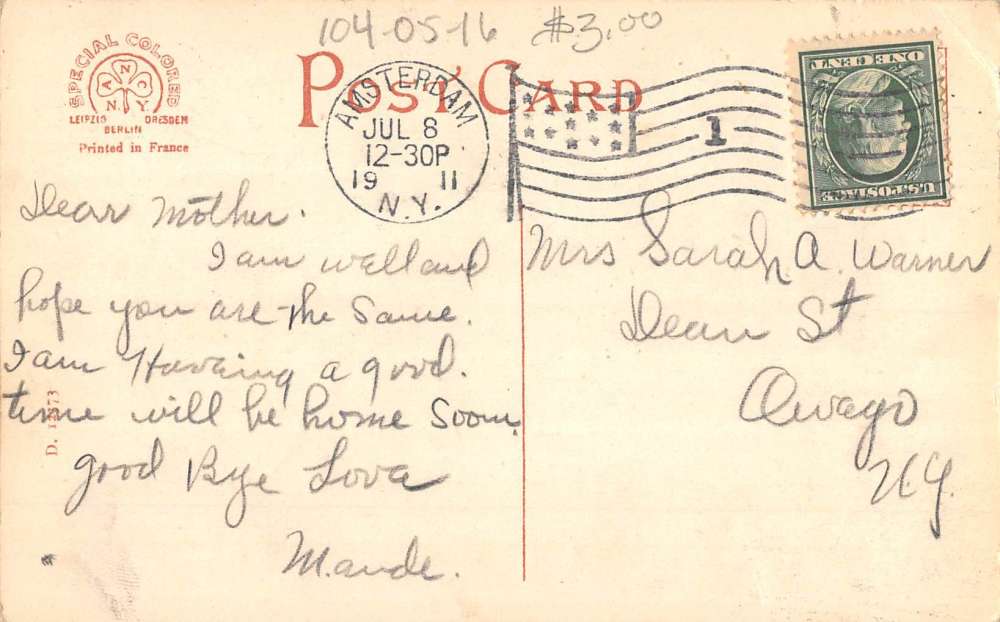 104-05-16 $3.00
SPECIAL COLORED
A N C
N. Y
LEIPZIG DRESDEN
BERLIN
Printed in France
POST CARD
AMSTERDAM
JUL 8
12-30P
19 11
N.Y.
1
ONE CENT
U.S. POSTAGE
Dear Mother.
I am well and
hope you are the Same.
I am Haveing a good.
time will be home Soon.
good Bye Love
Maude.
D. 12873
Mrs Sarah A. Warner
Dean St
Owego
N.Y.